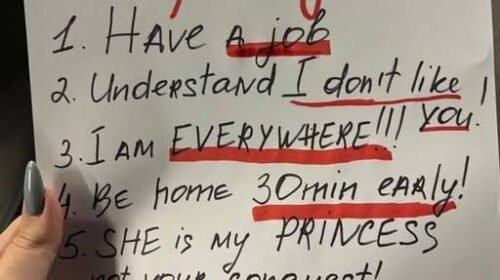 1. HAVE A job
2. Understand I don't like YOU!
3. I AM EVERYWHERE!!!
4. BE home 30min EARLY!
5. SHE is my PRINCESS
not your conquest!